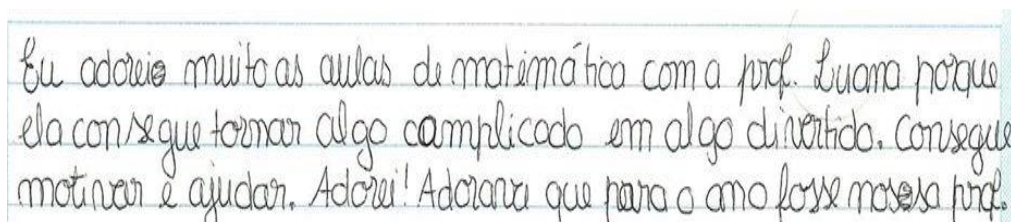 Eu adorei muito as aulas de matemática com a prof. Luana porque
ela consegue tornar algo complicado em algo divertido. Consegue
motivar e ajudar. Adorei! Adorava que para o ano fosse nossa prof.